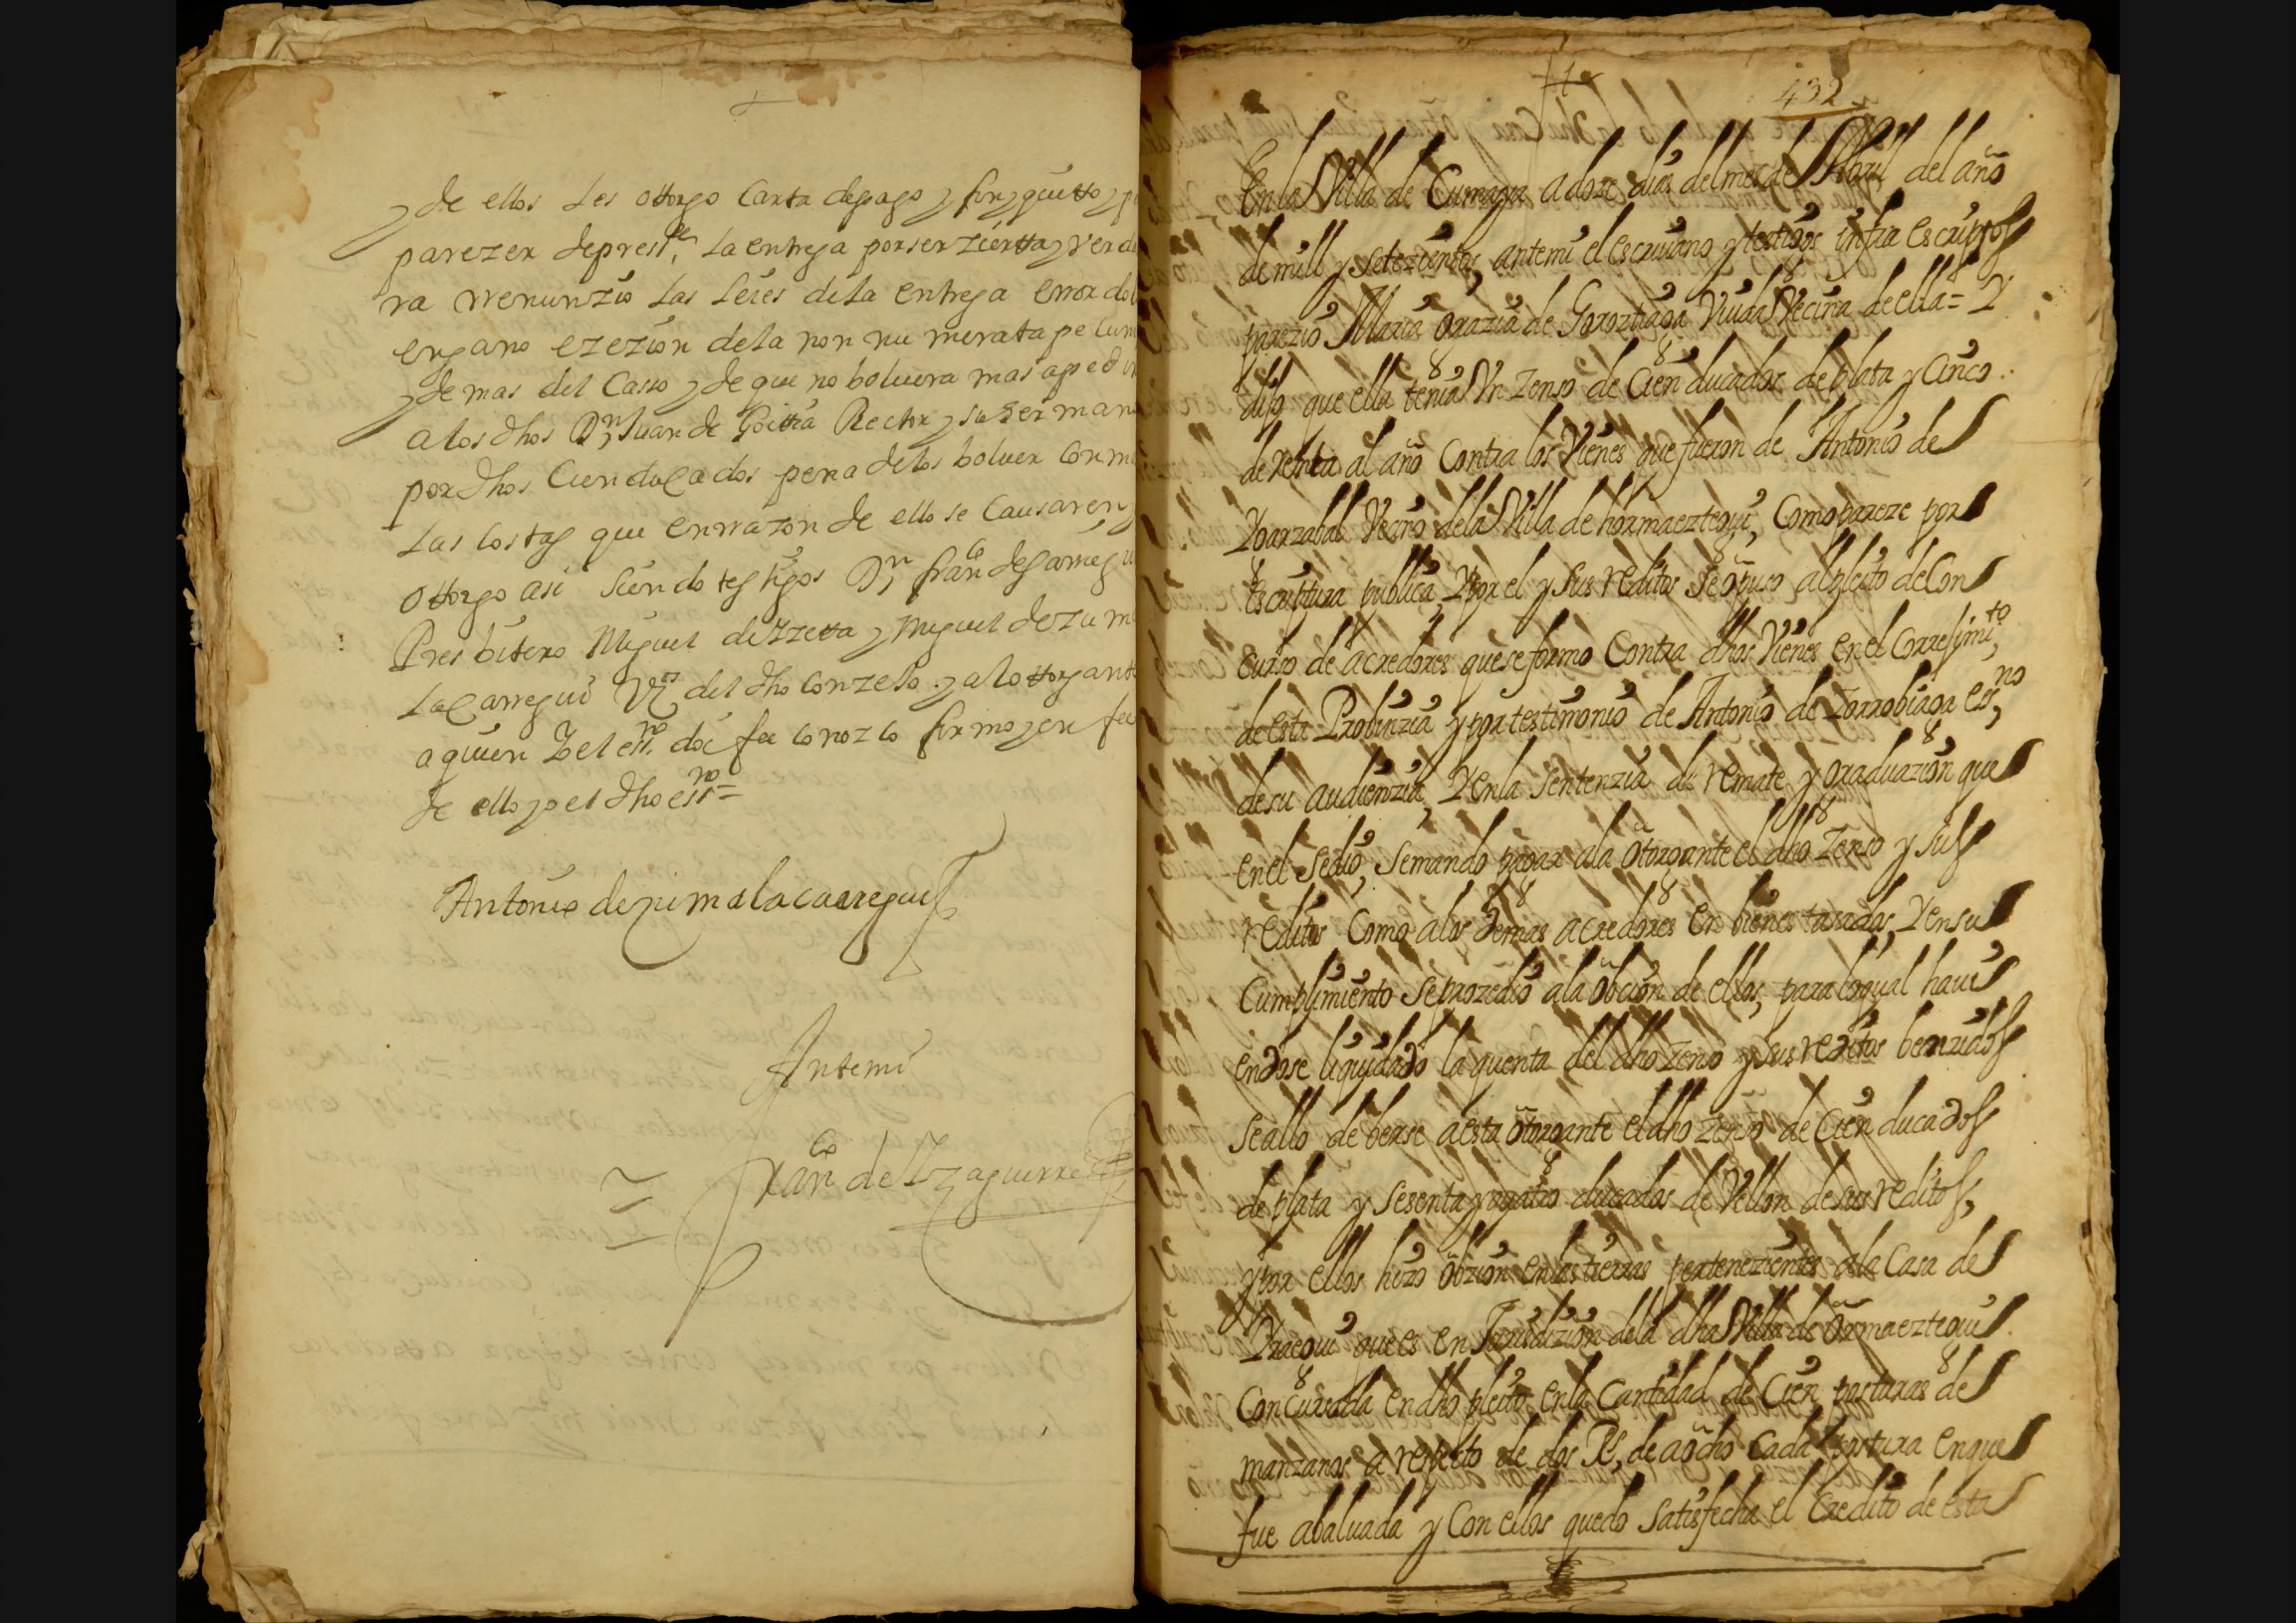 y de ellos les ottorgo Carta de pago y finyquitto y p
parezer de presste. la entrega por ser zierttay Verda
ra rrenunzio las leies de la entrega error dol
engano ezezion dela non nu merata pe cun
y demas del Caso y de que no boluera mas a ped ir
a los dhos Dn Juan de Goittia Rector y su Herman
por dhos Cien ducados pena de los boluer con m
las costas que en rrazon de ello se Causaren y
ottorgo asi siendo testigos Dn franco de
Presbitero Miguel de Yzetta y Miguel de Zu ma
lacarregui Vos del dho Conzeto. y al ottorgante
a quien Yo el essno doi fee Conozco firmo y en fee
de ello yo el dho essno=
Antonio de zumalacarregui
Ante mi
franco de Yzaguirre
432
En la Villa de Cumaya a doze dias del mes de Abril del año
de mill y setezientos, ante mi el escriuano y testigos infra escriptos
parezio Maria Grazia de Goroztiaga Viuda Vecina de ella= Y
dijo que ella tenia Vn Zenso de Cien ducados de plata y Cinco
de renta al año Contra los Vienes que fueron de Antonio de
Yoarzabal Vecino de la Villa de hormaeztegui, Como pareze por
escriptura publica, Y por el y sus reditos se opuso al pleito de Con
curso de acredores que se formo Contra dhos Vienes en el Correjimito,
de esta Probinzia y por testimonio de Antonio de Zorrobiaga esno,
de su audienzia, Y en la Sentenzia de remate y graduazion que
en el se dio, se mando pagar ala otorgante el dho Zenso y sus
reditos Como alos demas acredores en bienes tasados, Y en su
Cumplimiento se prozedio ala obcion de ellos, para loqual haui
endose liquidado la quenta del dho Zenso y sus reditos benzidos
se allo deberse a esta otorgante el dho Zenso de Cien ducados
de plata y sesenta y quatro ducados de Vellon de sus reditos,
y por ellos hizo obzion en las tierras pertenezientes ala Casa de
Yraegui que es en Jurisdizion de la dha Villa de Ormaeztegui
Concursada en dho pleito en la Cantidad de Cien posturas de
manzanos a respecto de dos Rs, de a ocho Cada postura en que
fue abaluada y Con ellos quedo satisfecha el Credito de esta